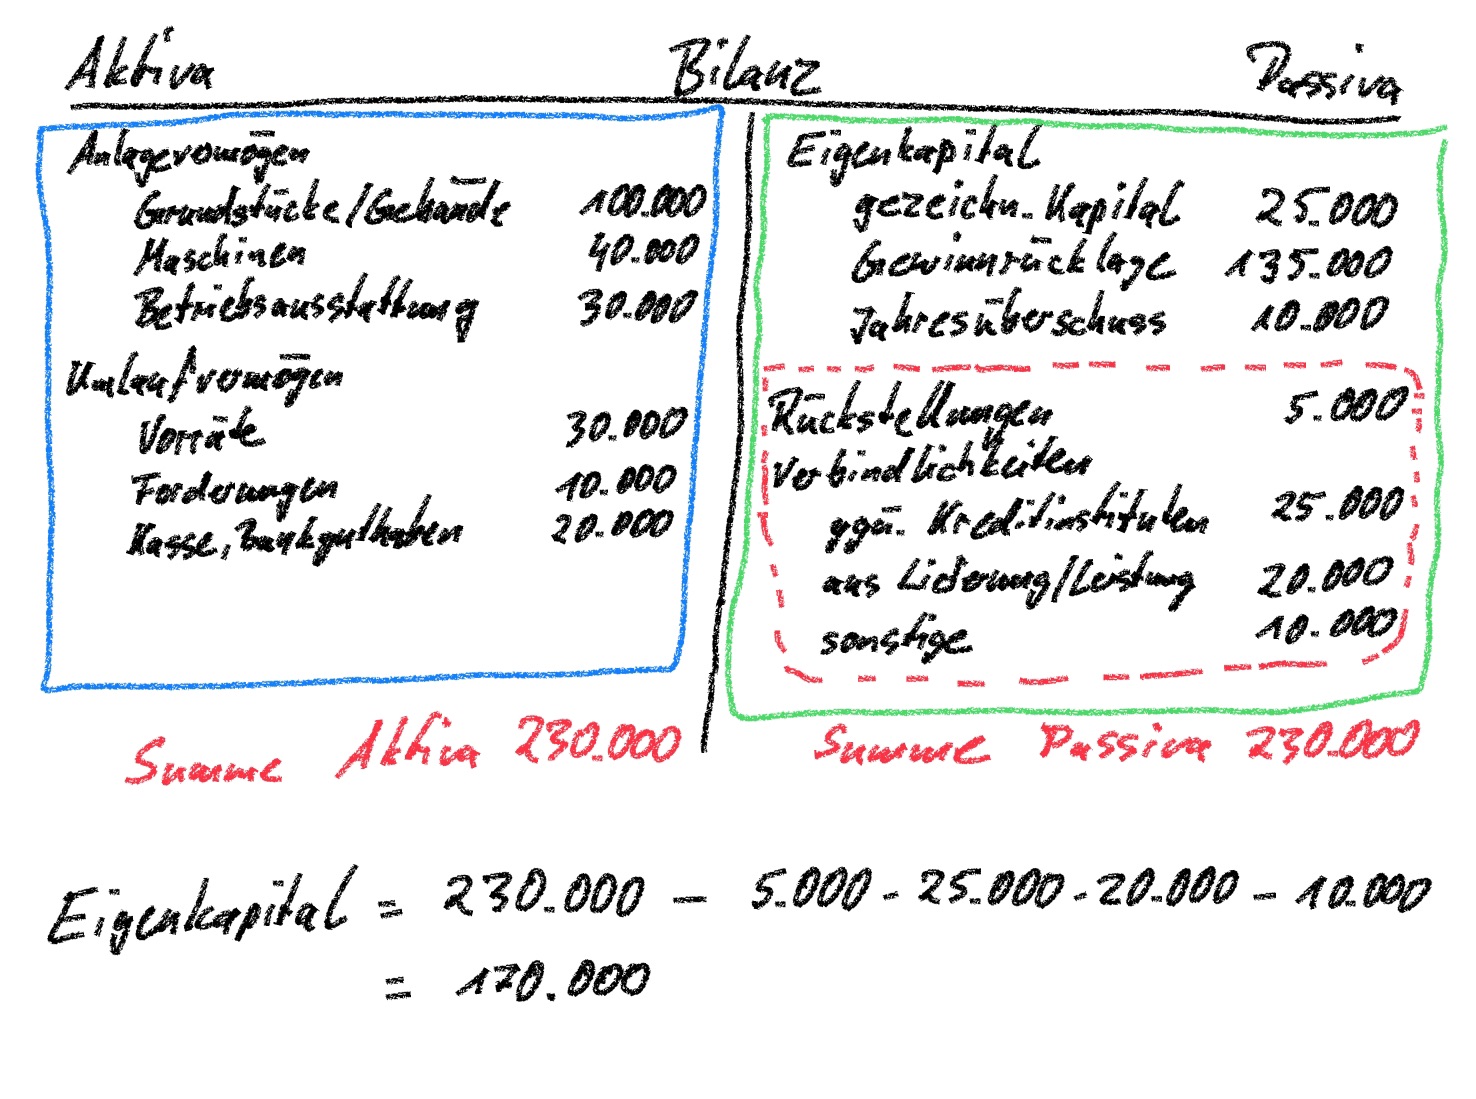 Aktiva Bilanz Passiva
Anlagevermögen
Grundstücke/Gebäude 100.000
Maschinen 40.000
Betriebsausstattung 30.000
Umlaufvermögen
Vorräte 30.000
Forderungen 10.000
Kasse, Bankguthaben 20.000
Summe Aktiva 230.000
Eigenkapital
gezeichn. Kapital 25.000
Gewinnrücklage 135.000
Jahresüberschuss 10.000
Rückstellungen 5.000
Verbindlichkeiten
ggü. Kreditinstituten 25.000
aus Lieferung/Leistung 20.000
sonstige 10.000
Summe Passiva 230.000
Eigenkapital = 230.000 - 5.000 - 25.000 - 20.000 - 10.000
= 170.000